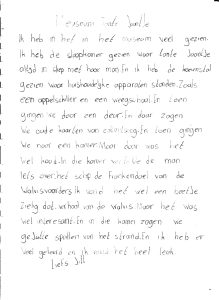 Museum Tante Jaantje
Ik heb in het in het museum veel gezien.
Ik heb de slaapkamer gezien waar tante Jaantje
altijd in sliep met haar man. En ik heb de
gezien waar huishoudelijke apparaten stonden. Zoals
een appelschiller en een weegschaal. En toen
gingen we door een deur. En daar zagen
we oude kaarten van En toen gingen
we naar een kamer. Maar daar was het
wel koud. In die kamer vertelde de man
iets over het schip de
Walvisvaarders. Ik vond het wel een beetje
zielig dat verhaal van de walvis. Maar het was
wel interessant. En in die kamer zagen we
spullen van het strand. En ik heb er
veel geleerd en ik vond het heel leuk
liefs